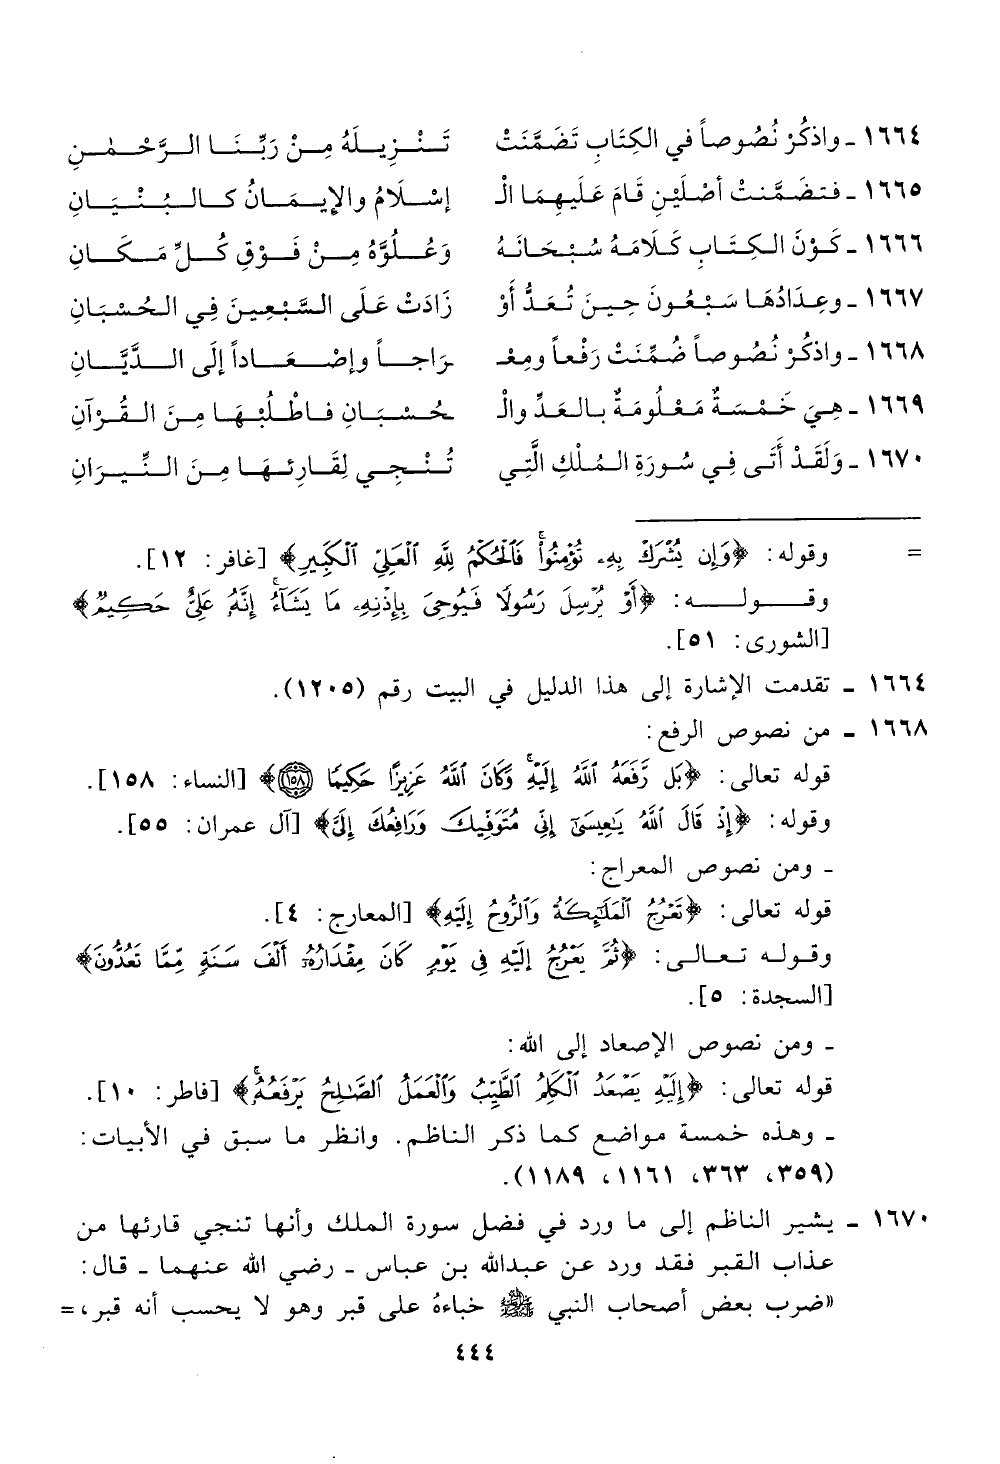 ١٦٦٤ ـ واذكُرْ نُصُوصاً في الكِتَابِ تَضَمَّنَتْ تَنْزِيلَهُ مِنْ رَبِّنَا الرَّحْمٰنِ
١٦٦٥ ـ فتضَمَّنتْ أصْلَيْنِ قَامَ عَلَيهِمَا الْـ إسْلَامُ والإيمَانُ كالبُنْيَانِ
١٦٦٦ ـ كَوْنَ الكِتَابِ كَلَامَهُ سُبْحَانَهُ وَعُلُوَّهُ مِنْ فَوْقِ كُلِّ مَكَانِ
١٦٦٧ ـ وعِدَادُهَا سَبْعُونَ حِينَ تُعَدُّ أَوْ زَادَتْ عَلَى السَّبْعِينَ فِي الحُسْبَانِ
١٦٦٨ ـ واذكُرْ نُصُوصاً ضُمِّنَتْ رَفْعاً ومِعْـ ـرَاجاً وإصْعَاداً إلَى الدَّيَّانِ
١٦٦٩ ـ هِيَ خَمْسَةٌ مَعْلُومَةٌ بالعَدِّ والْـ ـحُسْبَانِ فاطْلُبْهَا مِنَ القُرْآنِ
١٦٧٠ ـ وَلَقَدْ أَتَى فِي سُورَةِ المُلْكِ الَّتِي تُنْجِي لِقَارِئِهَا مِنَ النِّيرَانِ
= وقوله: ﴿وَإِن يُشْرَكْ بِهِۦ تُؤْمِنُواْۚ فَٱلْحُكْمُ لِلَّهِ ٱلْعَلِيِّ ٱلْكَبِيرِ﴾ [غافر: ١٢].
وقوله: ﴿أَوْ يُرْسِلَ رَسُولًا فَيُوحِيَ بِإِذْنِهِۦ مَا يَشَآءُۚ إِنَّهُۥ عَلِيٌّ حَكِيمٌ﴾
[الشورى: ٥١].
١٦٦٤ ـ تقدمت الإشارة إلى هذا الدليل في البيت رقم (١٢٠٥).
١٦٦٨ ـ من نصوص الرفع:
قوله تعالى: ﴿بَل رَّفَعَهُ ٱللَّهُ إِلَيْهِۚ وَكَانَ ٱللَّهُ عَزِيزًا حَكِيمًا ١٥٨﴾ [النساء: ١٥٨].
وقوله: ﴿إِذْ قَالَ ٱللَّهُ يَٰعِيسَىٰٓ إِنِّي مُتَوَفِّيكَ وَرَافِعُكَ إِلَيَّ﴾ [آل عمران: ٥٥].
ـ ومن نصوص المعراج:
قوله تعالى: ﴿تَعْرُجُ ٱلْمَلَٰٓئِكَةُ وَٱلرُّوحُ إِلَيْهِ﴾ [المعارج: ٤].
وقوله تعالى: ﴿ثُمَّ يَعْرُجُ إِلَيْهِ فِي يَوْمٍ كَانَ مِقْدَارُهُۥٓ أَلْفَ سَنَةٍ مِّمَّا تَعُدُّونَ﴾
[السجدة: ٥].
ـ ومن نصوص الإصعاد إلى الله:
قوله تعالى: ﴿إِلَيْهِ يَصْعَدُ ٱلْكَلِمُ ٱلطَّيِّبُ وَٱلْعَمَلُ ٱلصَّٰلِحُ يَرْفَعُهُۥۚ﴾ [فاطر: ١٠].
ـ وهذه خمسة مواضع كما ذكر الناظم. وانظر ما سبق في الأبيات:
(٣٥٩، ٣٦٣، ١١٦١، ١١٨٩).
١٦٧٠ ـ يشير الناظم إلى ما ورد في فضل سورة الملك وأنها تنجي قارئها من
عذاب القبر فقد ورد عن عبدالله بن عباس ـ رضي الله عنهما ـ قال:
«ضرب بعض أصحاب النبي ﷺ خباءهُ على قبر وهو لا يحسب أنه قبر، =
٤٤٤